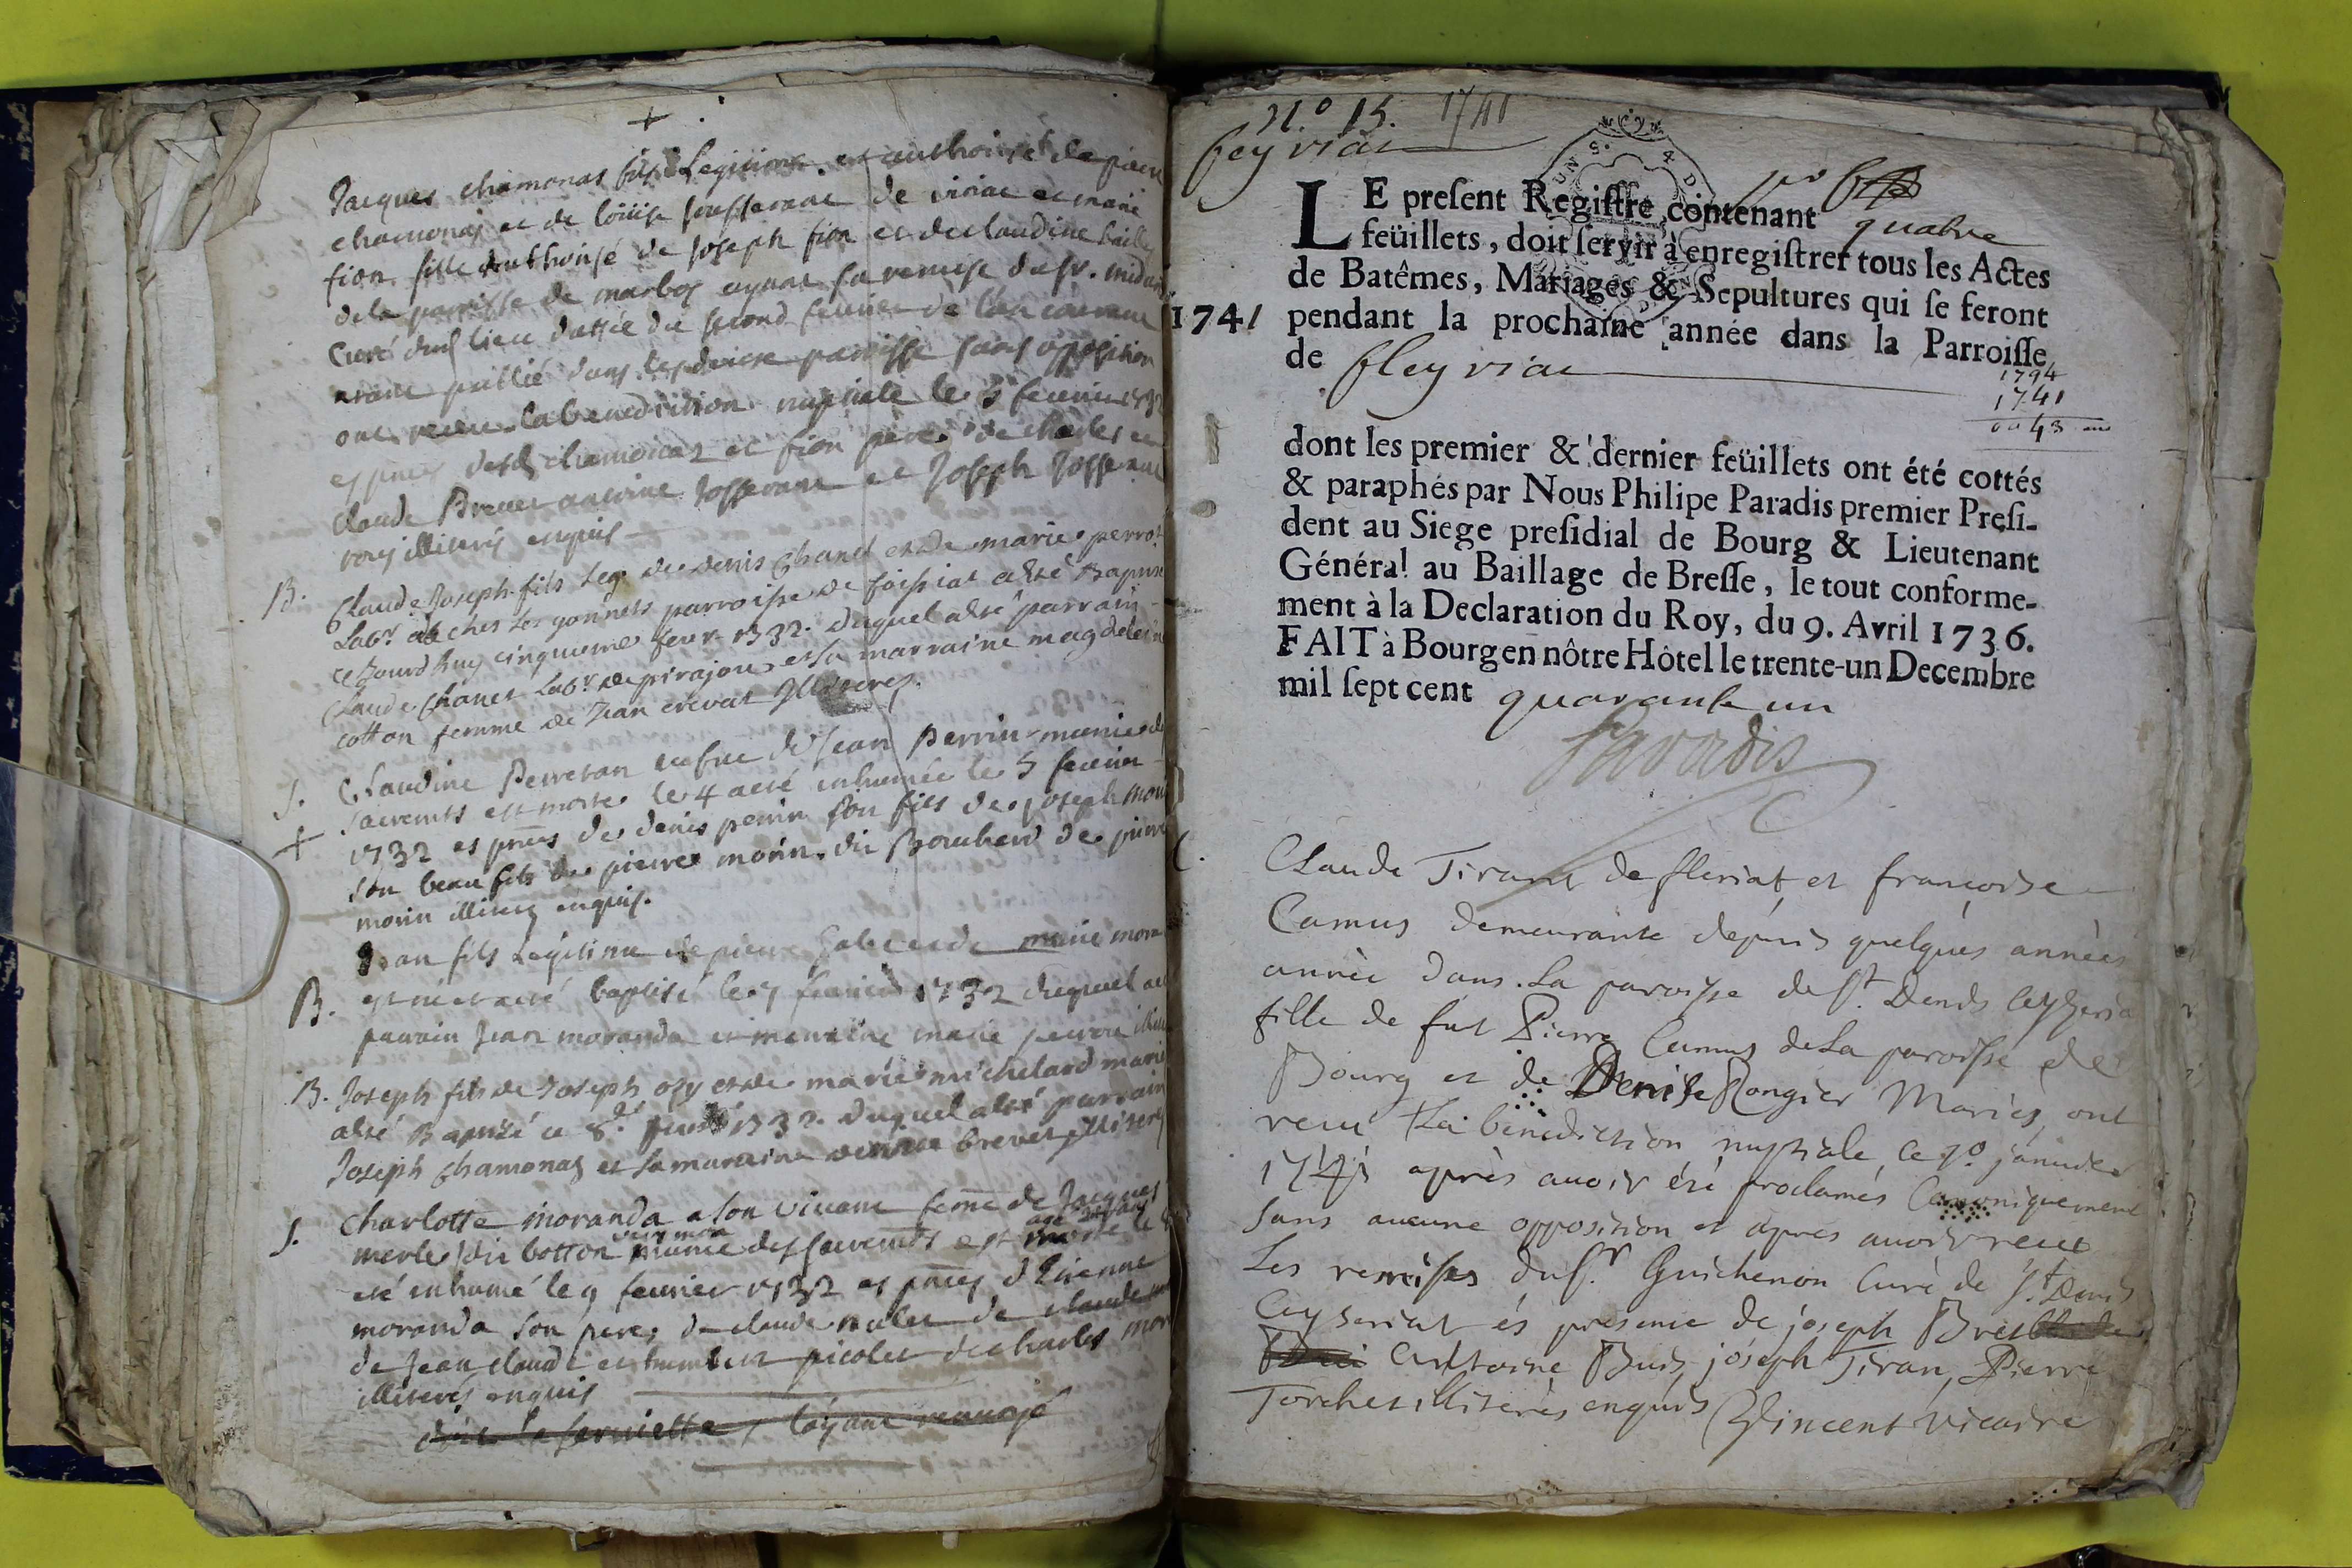 Jacques chamonas fils Legitime et authorisé de pierre
chamonas et de loüise josserane de viriac et marie
fion fille authorisé de Joseph fion et de claudine
dela parroisse de marbos ayant sa remise du sr. midan
Curé dud lieu dattée du second feurier de l'an courant
avoir publié dans les deux parroisse sans opposition
ont receu la benediction nuptiale le 5 feurier 1732
es pnces desd chamonas et fion peres de charles et
claude Brevet antoine Josserane et Joseph Josserane
tous illiterés enquis
B.
Claude Joseph fils leg. de denis Chanel et de marie perrot
Labr. ches les gonnets parroisse de foissiat a été Baptisé
ce Jourdhuy cinquieme feur. 1732. duquel a été parrain
Claude Chanel Labr de pirajoux et sa marraine magdeleine
cotton femme de Jean crevat Illiterés.
S.
+
Claudine Perreran vefue de Jean Perrin munie des
sacremts est morte le 4 a eté inhumée le 5 feurier
1732 es pnces de denis perrin son fils de joseph
son beau fils de pierre morin dit Bombard de pierre
morin illiteres enquis.
B.
Jean fils Legitime de pierre et de marie
est né et a eté baptisé le 7 feurier 1732 duquel a eté
parrain Jean moranda et marraine marie
B. Joseph fils de Joseph ozy et de marie michelard mariés
a été Baptizé ce 8e feur 1732. duquel a été parrain
Joseph Chamonas et sa maraine brevet Illiterés
S.
Charlotte moranda a son vivant feme de Jacques
merle dit botton munie des sacremts est morte le
eté inhumé le 9 feurier 1732 es pnces d'Etienne
moranda son pere, de claude nalet de claude
de Jean claude et humbert picolet de charles
illiterés enquis
la serviette l'ayant
n.o 15. 1741
feyriat
LE present Registre contenant quatre
feüillets, doit servir à enregistrer tous les Actes
de Batêmes, Mariages & Sepultures qui se feront
1741 pendant la prochaine année dans la Parroisse
de fleyriac
1794
1741
43 ans
dont les premier & dernier feüillets ont été cottés
& paraphés par Nous Philipe Paradis premier Presi-
dent au Siege presidial de Bourg & Lieutenant
Général au Baillage de Bresse, le tout conforme-
ment à la Declaration du Roy, du 9. Avril 1736.
FAIT à Bourg en nôtre Hôtel le trente-un Decembre
mil sept cent quarante un
Paradis
Claude Tirant de fleriat et francoise
Camus demeurante depuis quelques années
année dans la paroisse de St. Denis Ceyzeria
fille de fut Pierre Camus de La paroisse de
Bourg et de Denise Rongier Mariés, ont
receu La bénédiction nuptiale ce 10 januier
1741 après auoir été proclamés Canoniquement
sans aucune opposition et apres auoir receu
Les remises du Sr. Guichenon Curé de St. Denis
Ceyseriat és presence de joseph Bret
Antoine Buis, joseph Tiran, Pierre
Torchet illiterés enquis Vincent Vicaire